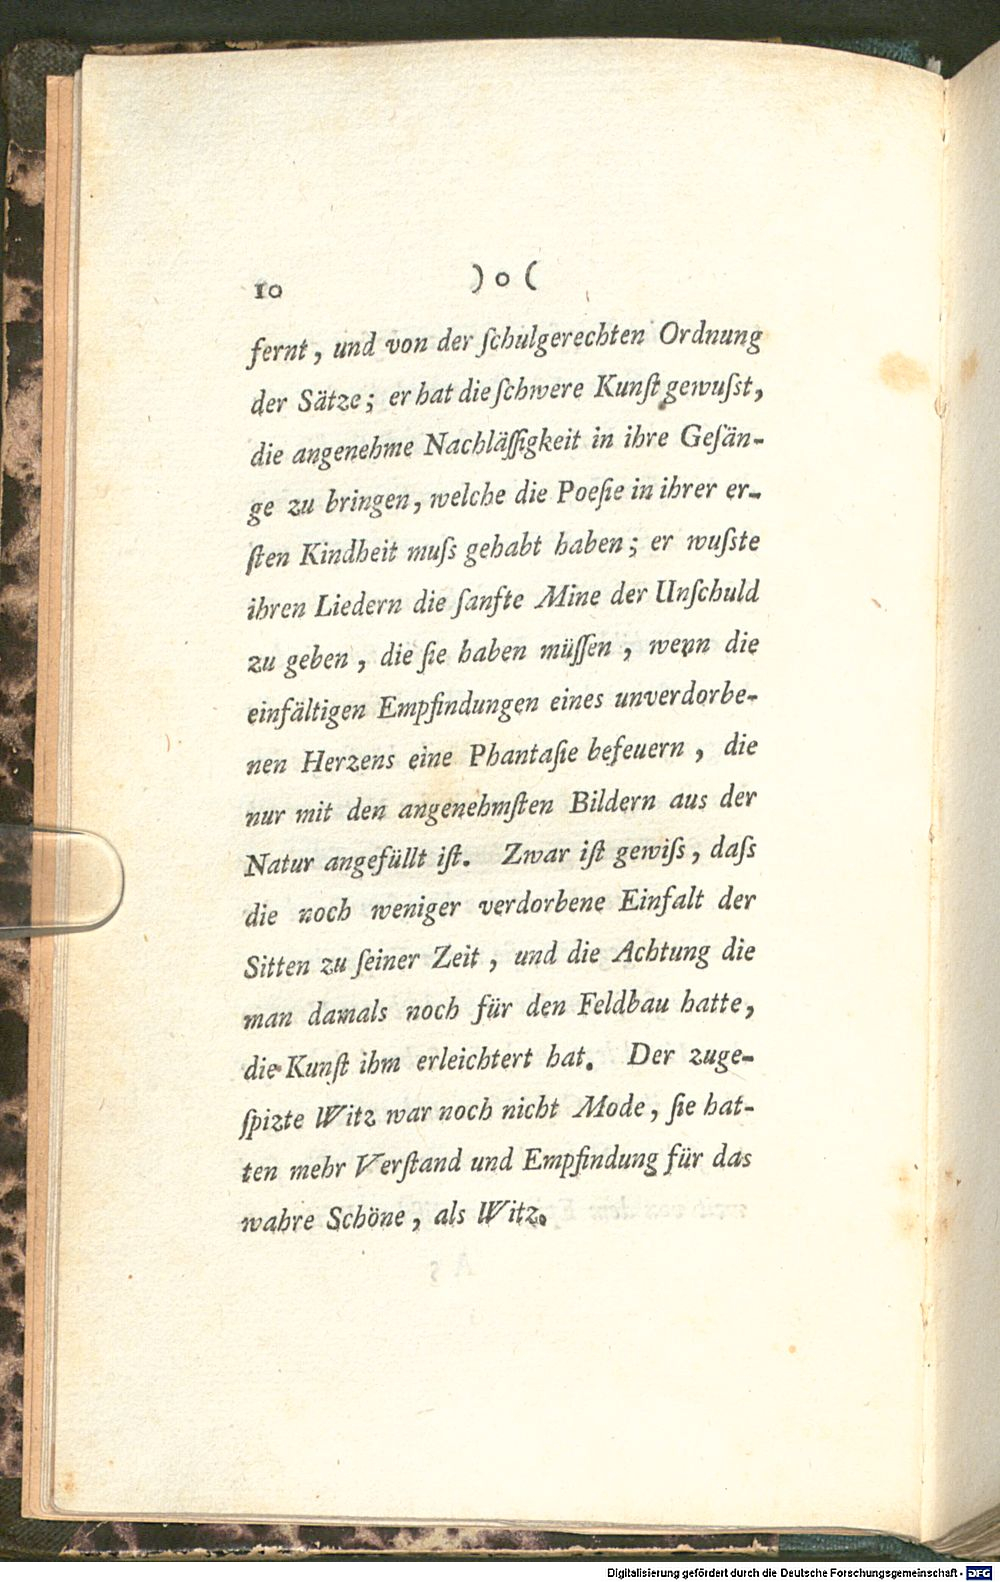 10 ) o (
fernt, und von der ſchulgerechten Ordnung
der Sätze; er hat die ſchwere Kunſt gewuſst,
die angenehme Nachläſſigkeit in ihre Geſän-
ge zu bringen, welche die Poeſie in ihrer er-
ſten Kindheit muſs gehabt haben; er wuſste
ihren Liedern die ſanfte Mine der Unſchuld
zu geben, die ſie haben müſſen, wenn die
einfältigen Empfindungen eines unverdorbe-
nen Herzens eine Phantaſie befeuern, die
nur mit den angenehmſten Bildern aus der
Natur angefüllt iſt. Zwar iſt gewiſs, daſs
die noch weniger verdorbene Einfalt der
Sitten zu ſeiner Zeit, und die Achtung die
man damals noch für den Feldbau hatte,
die Kunſt ihm erleichtert hat. Der zuge-
ſpizte Witz war noch nicht Mode, ſie hat-
ten mehr Verſtand und Empfindung für das
wahre Schöne, als Witz.
Digitalisierung gefördert durch die Deutsche Forschungsgemeinschaft - DFG